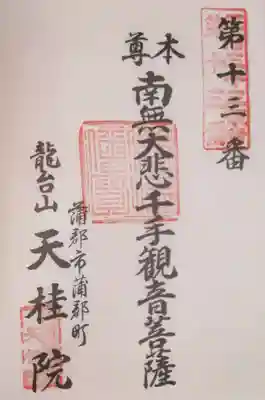 第十三番
本尊
南無大悲千手観音菩薩
蒲郡市蒲郡町
龍台山
天桂院